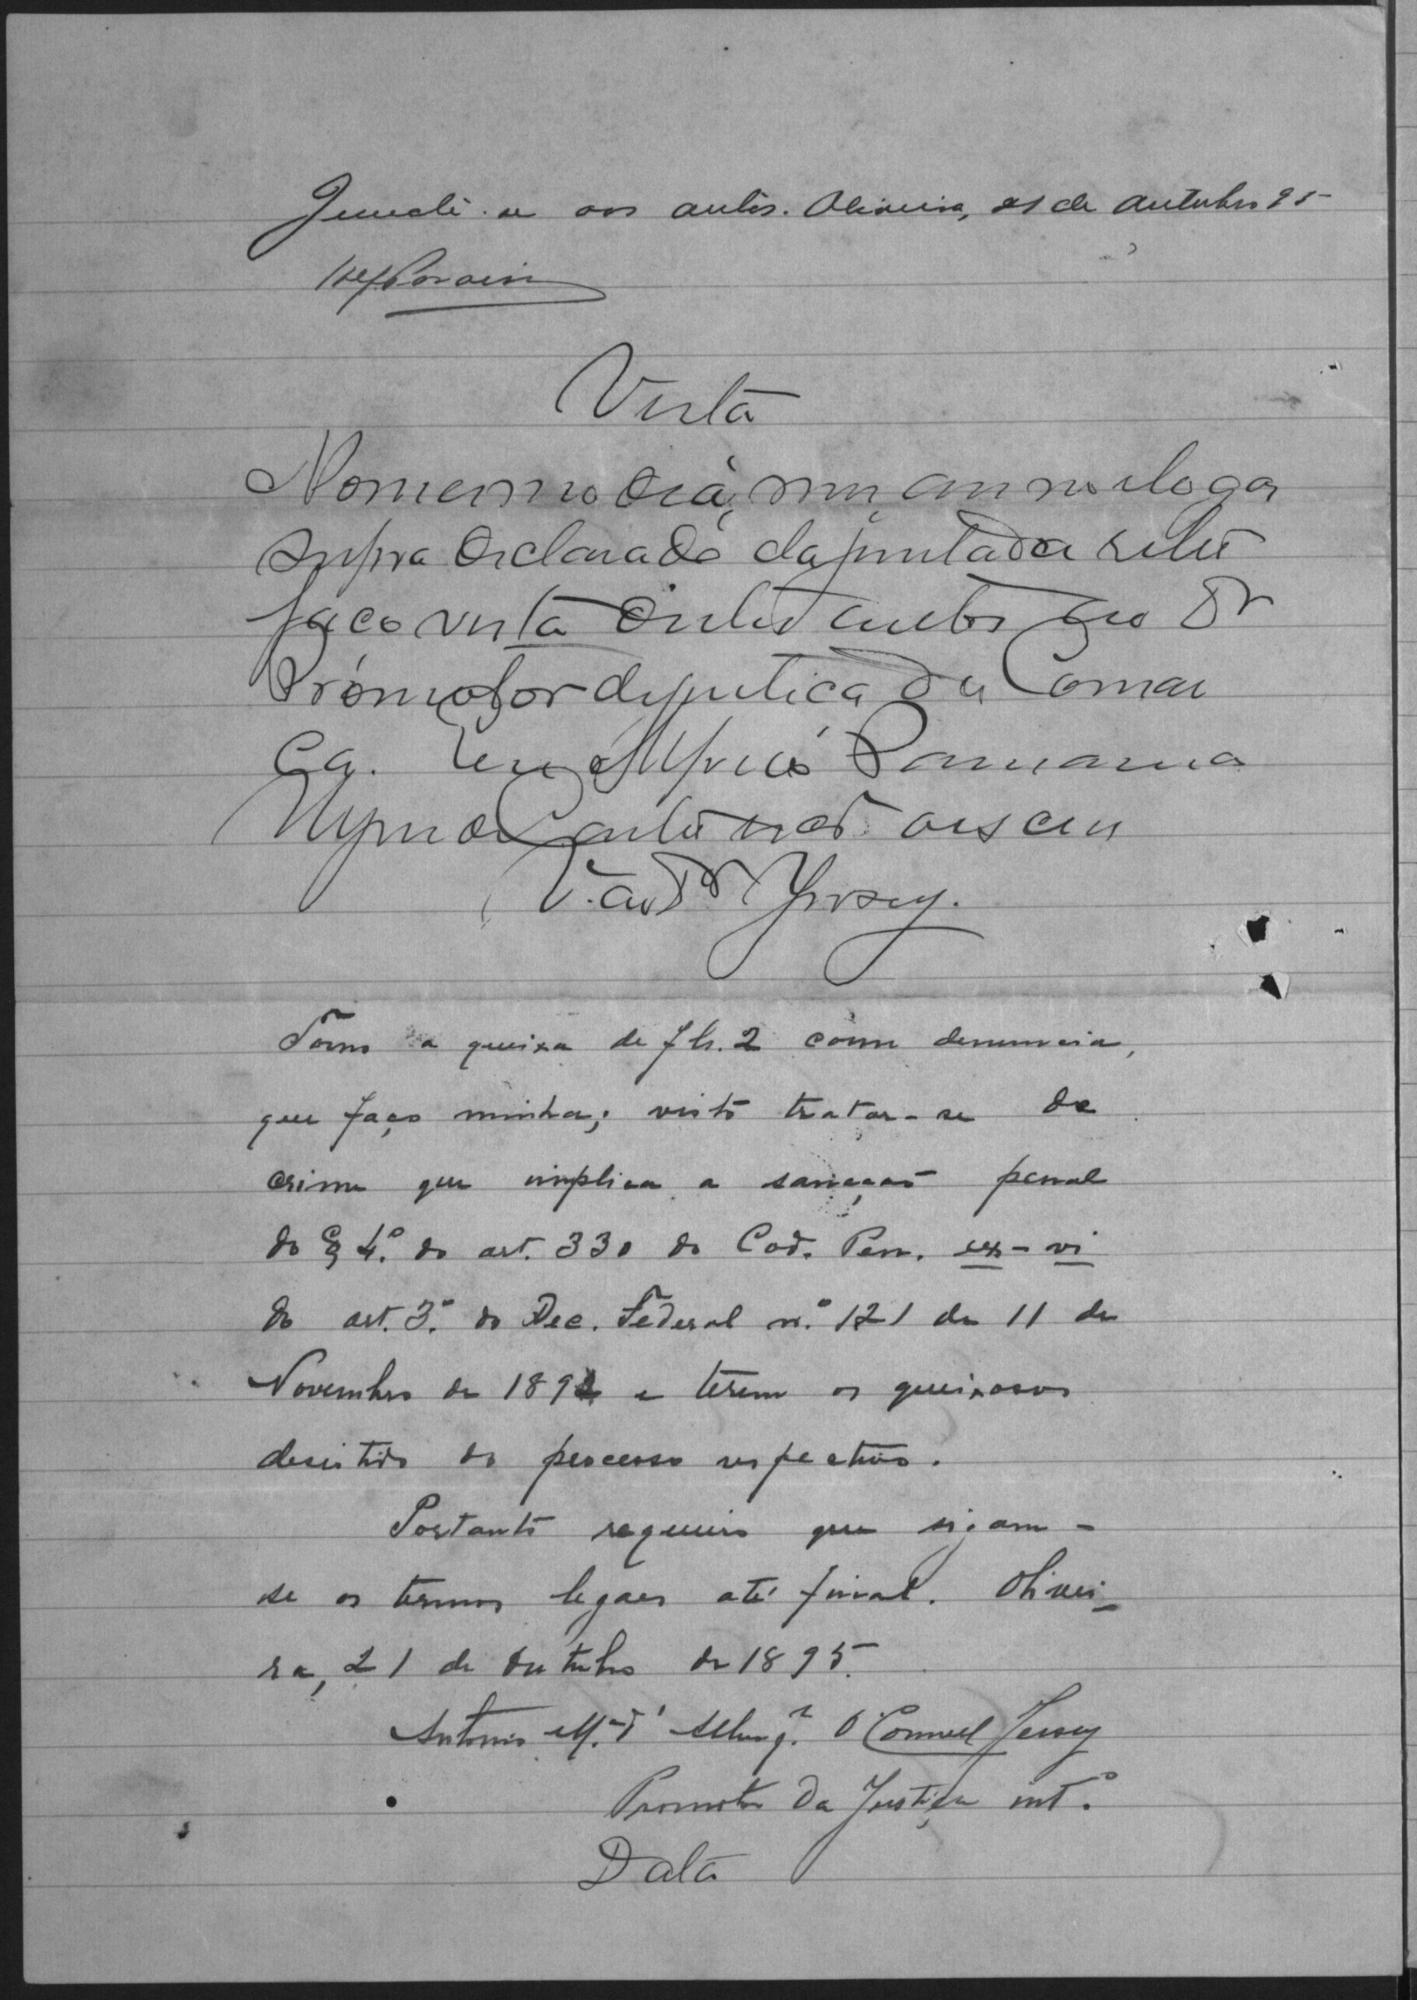 Junete-se aos autos. Oliveira, 21 de Outubro 95
Vista
No mesmo dia, mez, anno e logar
supra declarado da juntada retro
faço vista destes autos ao Dr
Promotor de justiça da Comar
ca. Eu
escrevi
V. ao Dr Jersey.
Tomo a queixa de fls. 2 como denuncia,
que faço minha; visto tratar-se de
crime que implica a sancção penal
do § 4.º do art. 330 do Cod. Pen. ex-vi
do art. 3.º do Dec. Federal n.º 121 de 11 de
Novembro de 1892 e terem os queixosos
desistido do processo respectivo.
Portanto requeiro que sigam-
se os termos legaes até final. Olivei-
ra, 21 de Outubro de 1895.
Antonio M. d' Albuq.e O'Connell Jersey
Promotor da Justiça int.º
Data